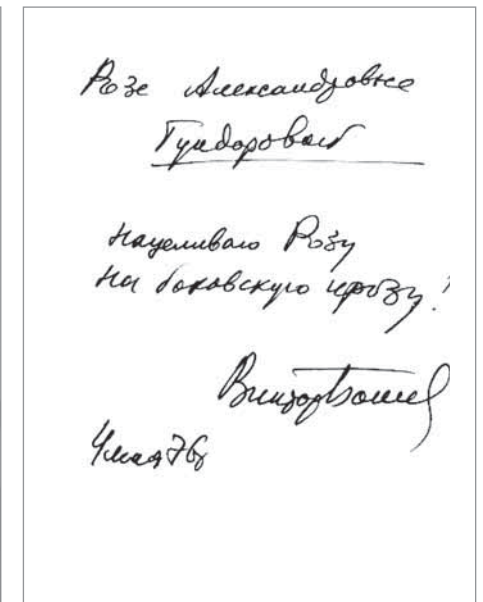 Розе Александровне
Гундоровой
нацеливаю Розу
на боковскую прозу!
Виктор Боков
4 мая 76